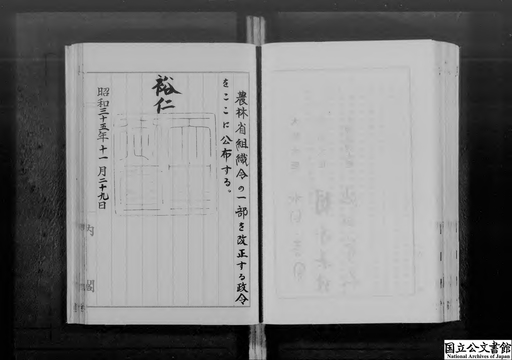 農林省組織令の一部を改正する政令
をここに公布する。
裕仁
昭和三十五年十一月二十九日
内閣
国立公文書館
National Archives of Japan